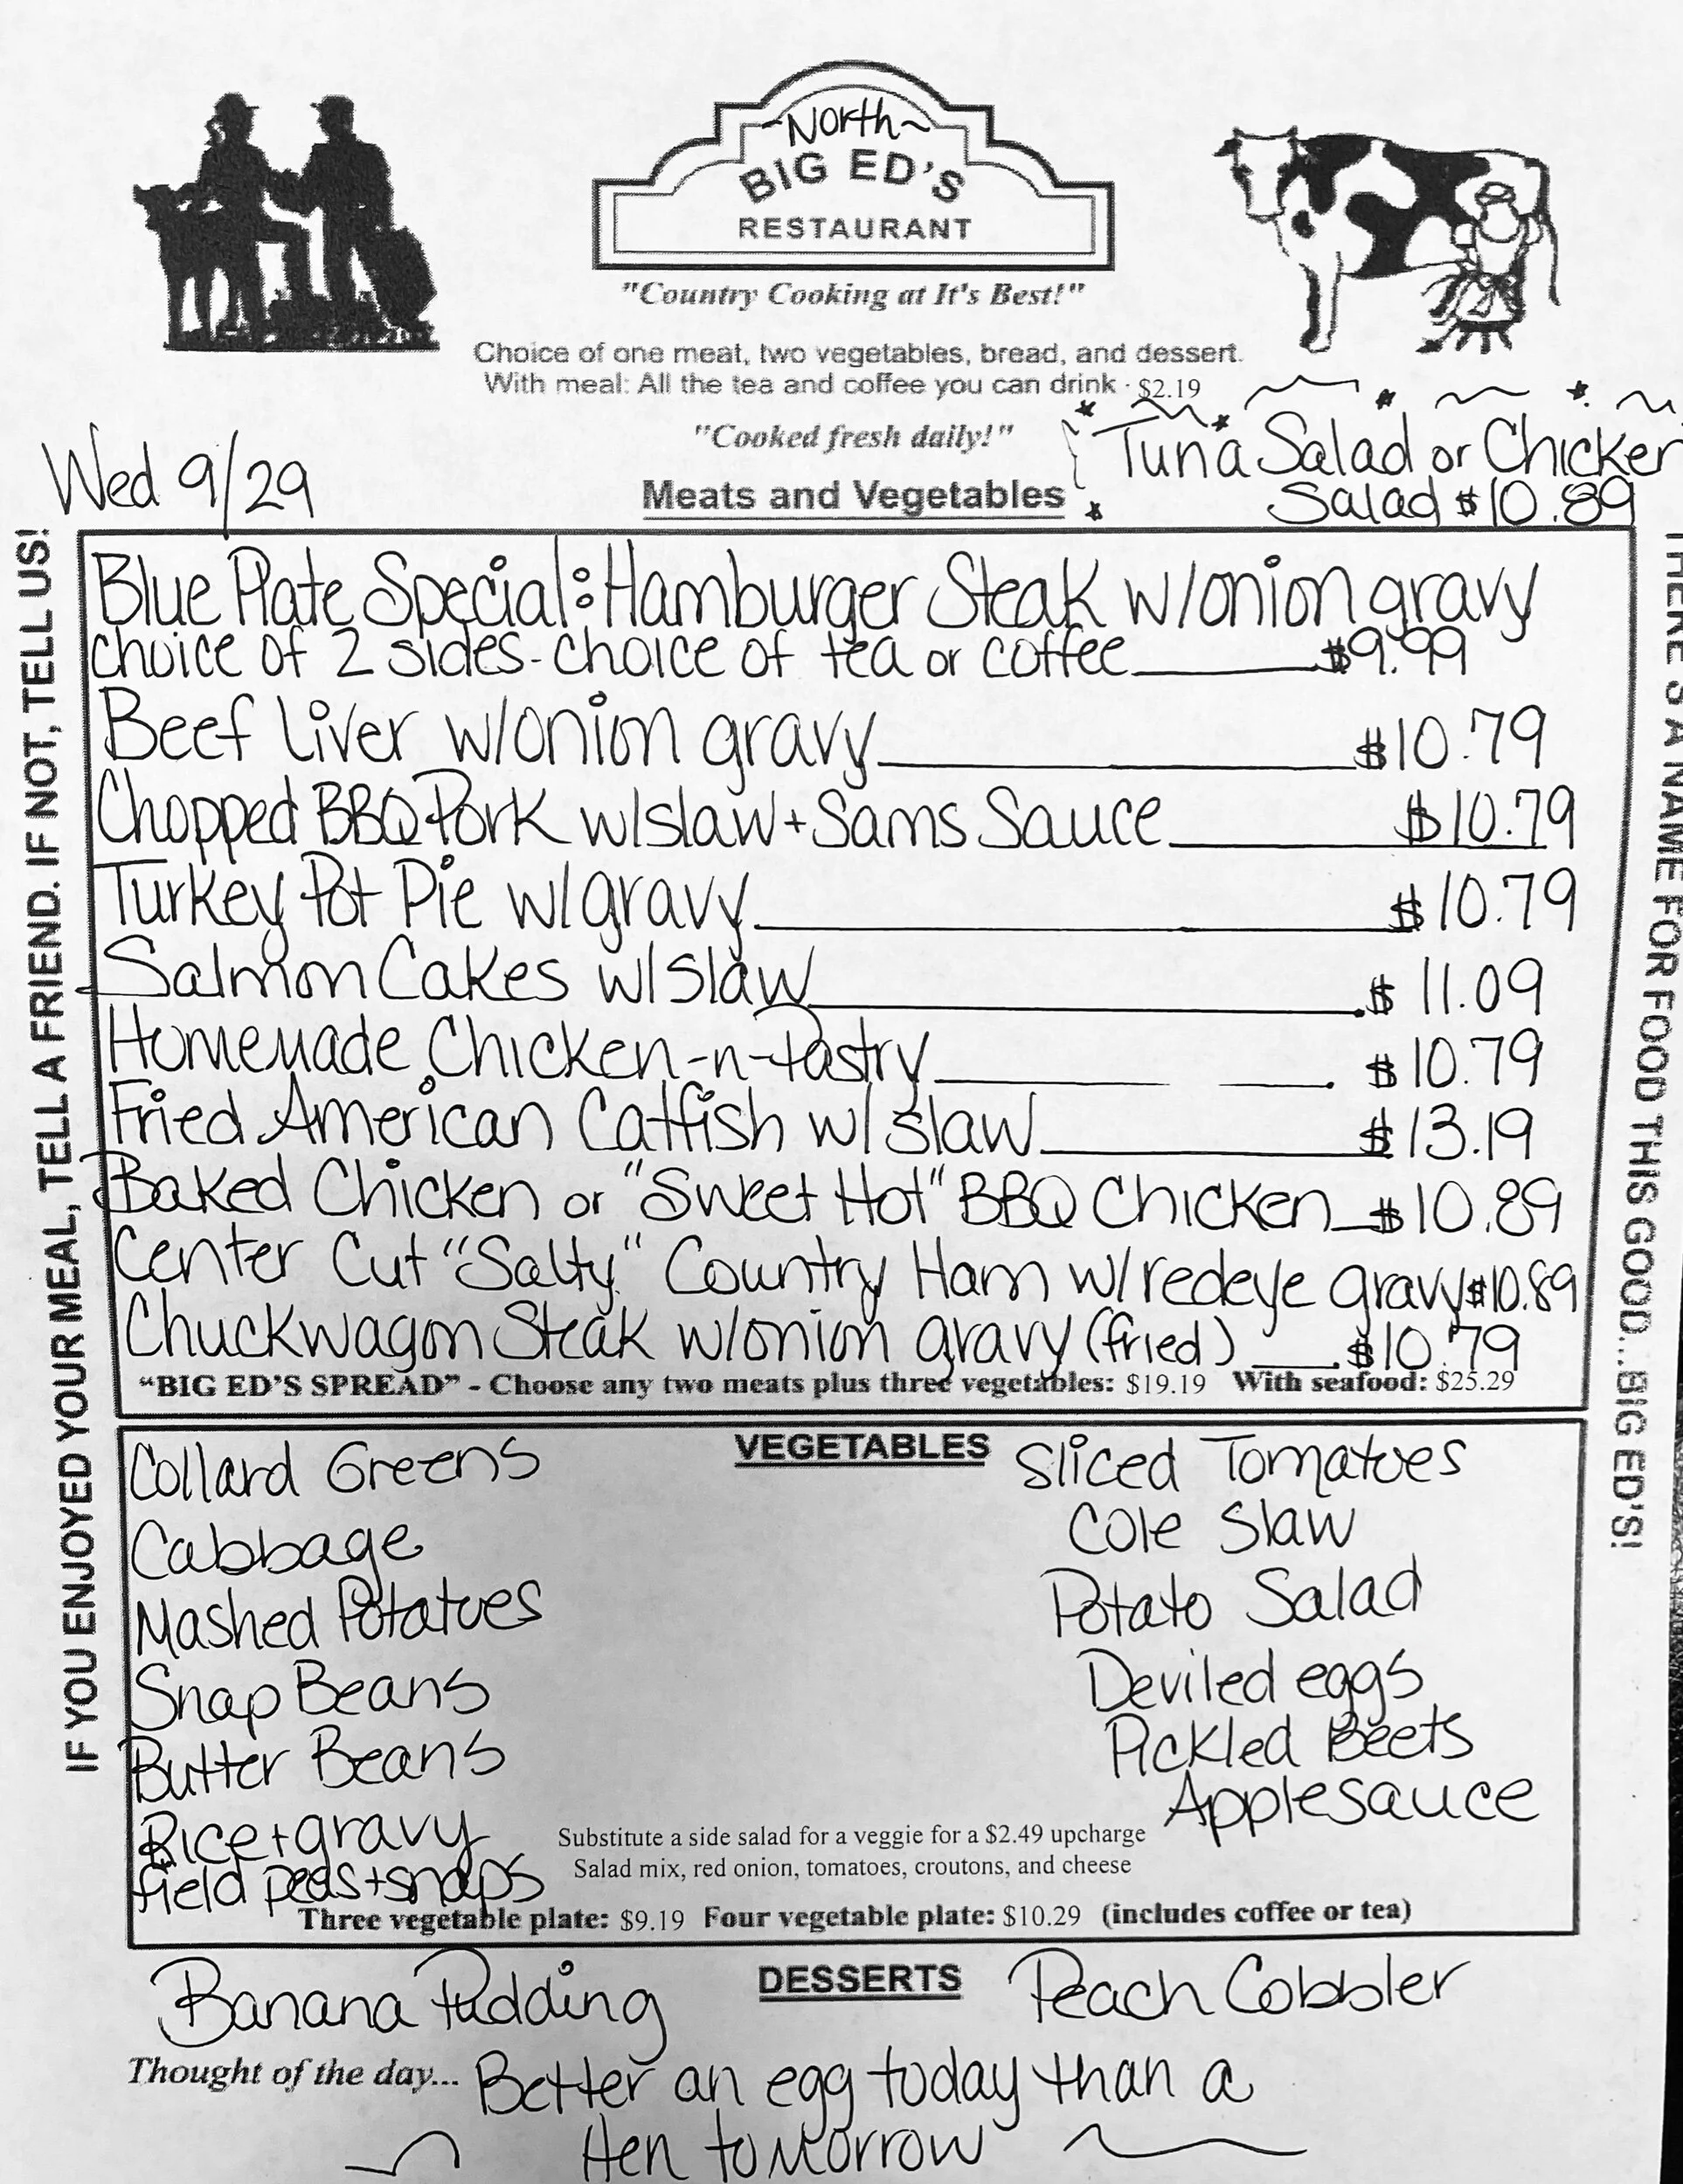 ~North~
BIG ED'S
RESTAURANT
"Country Cooking at It's Best!"
Choice of one meat, two vegetables, bread, and dessert.
With meal: All the tea and coffee you can drink · $2.19
"Cooked fresh daily!"
Tuna Salad or Chicken
Salad $10.89
Wed 9/29
Meats and Vegetables
IF YOU ENJOYED YOUR MEAL, TELL A FRIEND. IF NOT, TELL US!
Blue Plate Special: Hamburger Steak w/onion gravy
choice of 2 sides - choice of tea or coffee $9.99
Beef Liver w/onion gravy $10.79
Chopped BBQ Pork w/slaw + Sams Sauce $10.79
Turkey Pot Pie w/gravy $10.79
Salmon Cakes w/slaw $11.09
Homemade Chicken-n-Pastry $10.79
Fried American Catfish w/slaw $13.19
Baked Chicken or "Sweet Hot" BBQ Chicken $10.89
Center Cut "Salty" Country Ham w/redeye gravy $10.89
Chuckwagon Steak w/onion gravy (fried) $10.79
"BIG ED'S SPREAD" - Choose any two meats plus three vegetables: $19.19 With seafood: $25.29
THERE'S A NAME FOR FOOD THIS GOOD...BIG ED'S!
VEGETABLES
Collard Greens
Cabbage
Mashed Potatoes
Snap Beans
Butter Beans
Rice + gravy
field peas + snaps
Sliced Tomatoes
Cole Slaw
Potato Salad
Deviled eggs
Pickled Beets
Applesauce
Substitute a side salad for a veggie for a $2.49 upcharge
Salad mix, red onion, tomatoes, croutons, and cheese
Three vegetable plate: $9.19 Four vegetable plate: $10.29 (includes coffee or tea)
DESSERTS
Banana Pudding
Peach Cobbler
Thought of the day... Better an egg today than a
Hen tomorrow